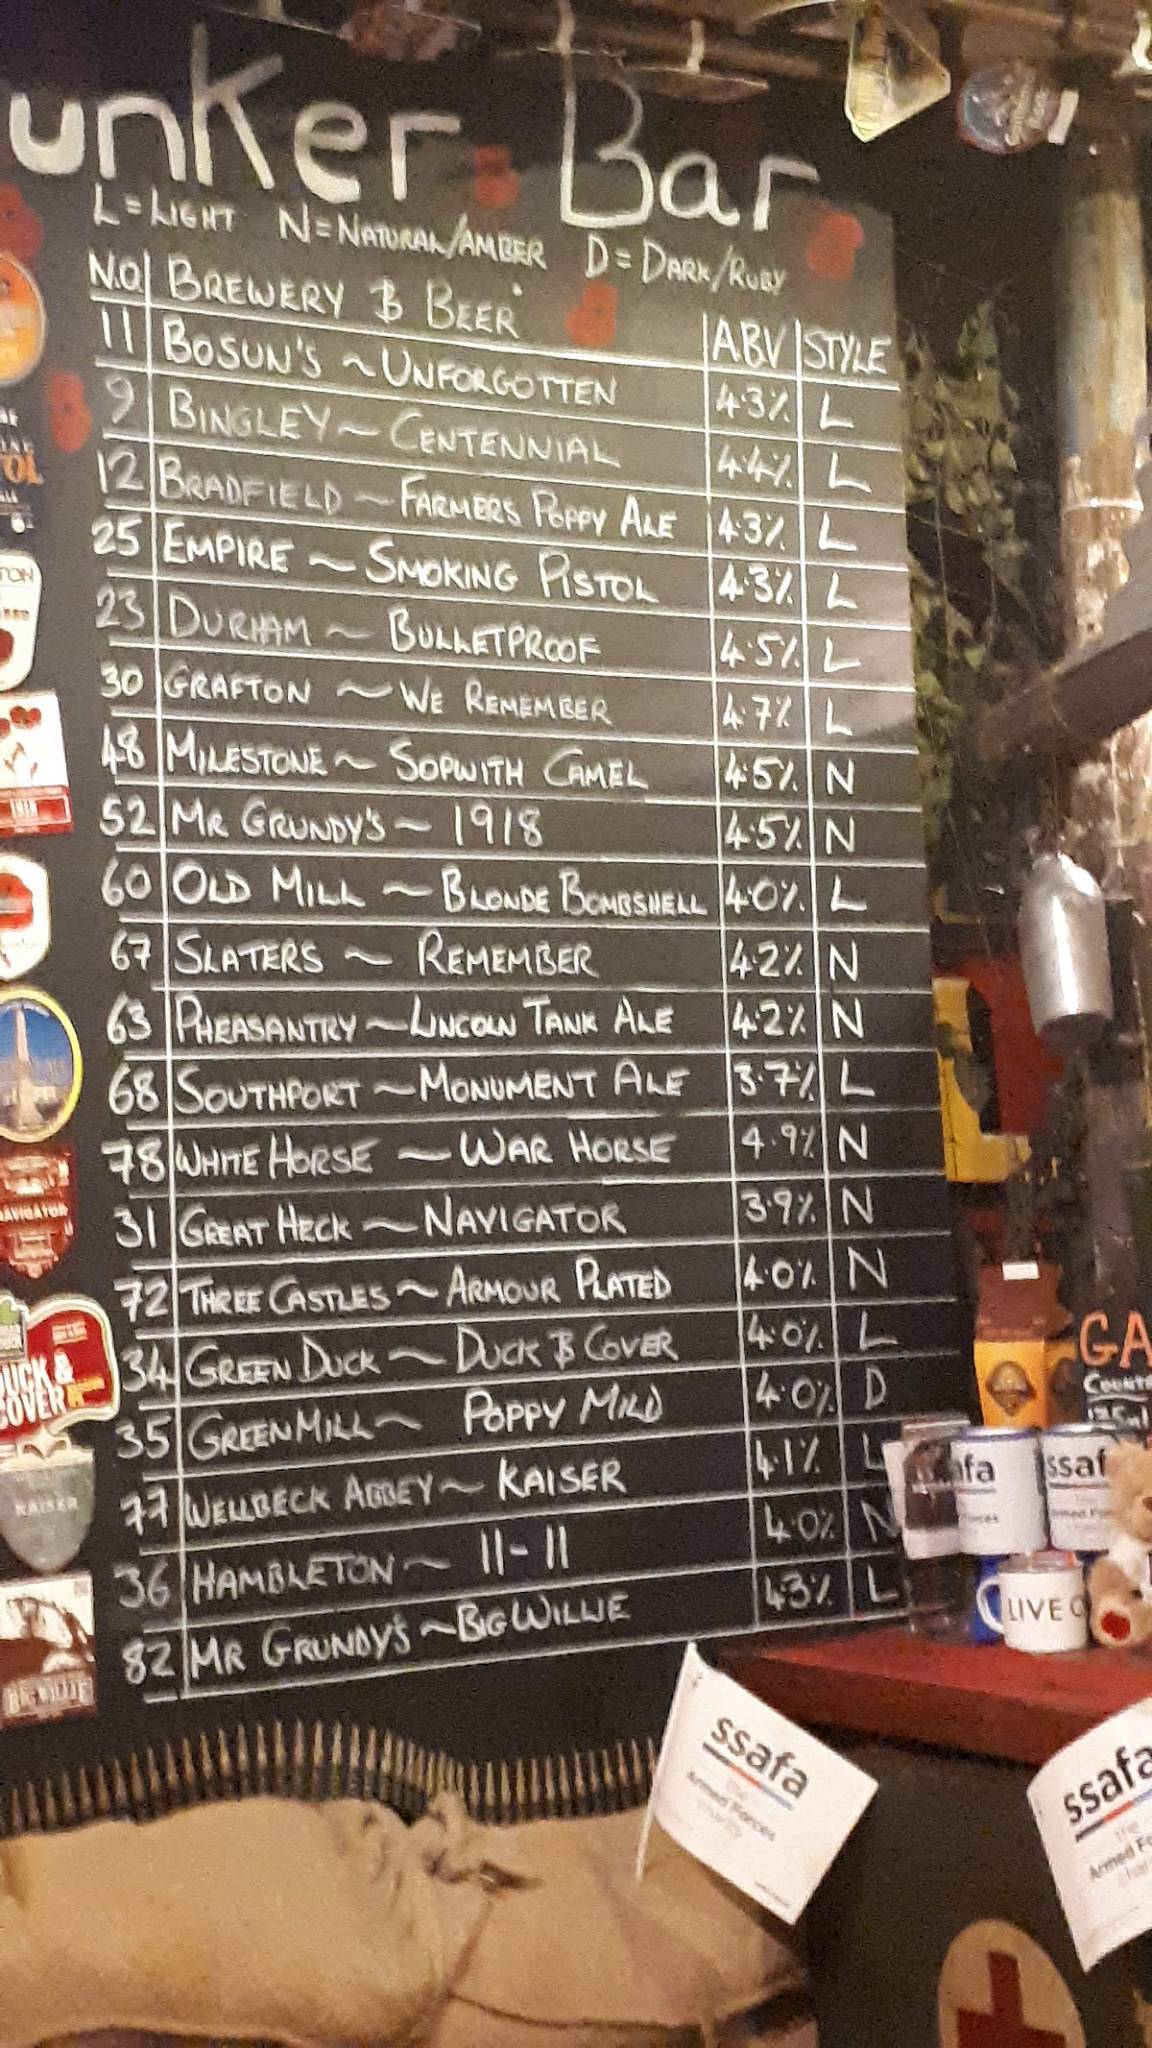 unker Bar
L = LIGHT N = NATURAL/AMBER D = DARK/RUBY
N.O BREWERY & BEER ABV STYLE
11 BOSUN'S ~ UNFORGOTTEN 4.3% L
9 BINGLEY ~ CENTENNIAL 4.4% L
12 BRADFIELD ~ FARMERS POPPY ALE 4.3% L
25 EMPIRE ~ SMOKING PISTOL 4.3% L
23 DURHAM ~ BULLETPROOF 4.5% L
30 GRAFTON ~ WE REMEMBER 4.7% L
48 MILESTONE ~ SOPWITH CAMEL 4.5% N
52 MR GRUNDY'S ~ 1918 4.5% N
60 OLD MILL ~ BLONDE BOMBSHELL 4.0% L
67 SLATERS ~ REMEMBER 4.2% N
63 PHEASANTRY ~ LINCOLN TANK ALE 4.2% N
68 SOUTHPORT ~ MONUMENT ALE 3.7% L
78 WHITE HORSE ~ WAR HORSE 4.9% N
31 GREAT HECK ~ NAVIGATOR 3.9% N
72 THREE CASTLES ~ ARMOUR PLATED 4.0% N
34 GREEN DUCK ~ DUCK & COVER 4.0% L
35 GREEN MILL ~ POPPY MILD 4.0% D
77 WELLBECK ABBEY ~ KAISER 4.1% L
36 HAMBLETON ~ 11-11 4.0% N
82 MR GRUNDY'S ~ BIG WILLIE 4.3% L
TON
AVIGATOR
UCK &
OVER
KAISER
BIG WILLIE
GA
afa
ssaf
LIVE
ssafa
the
Armed Forces
charity
ssafa
the
Armed Fo